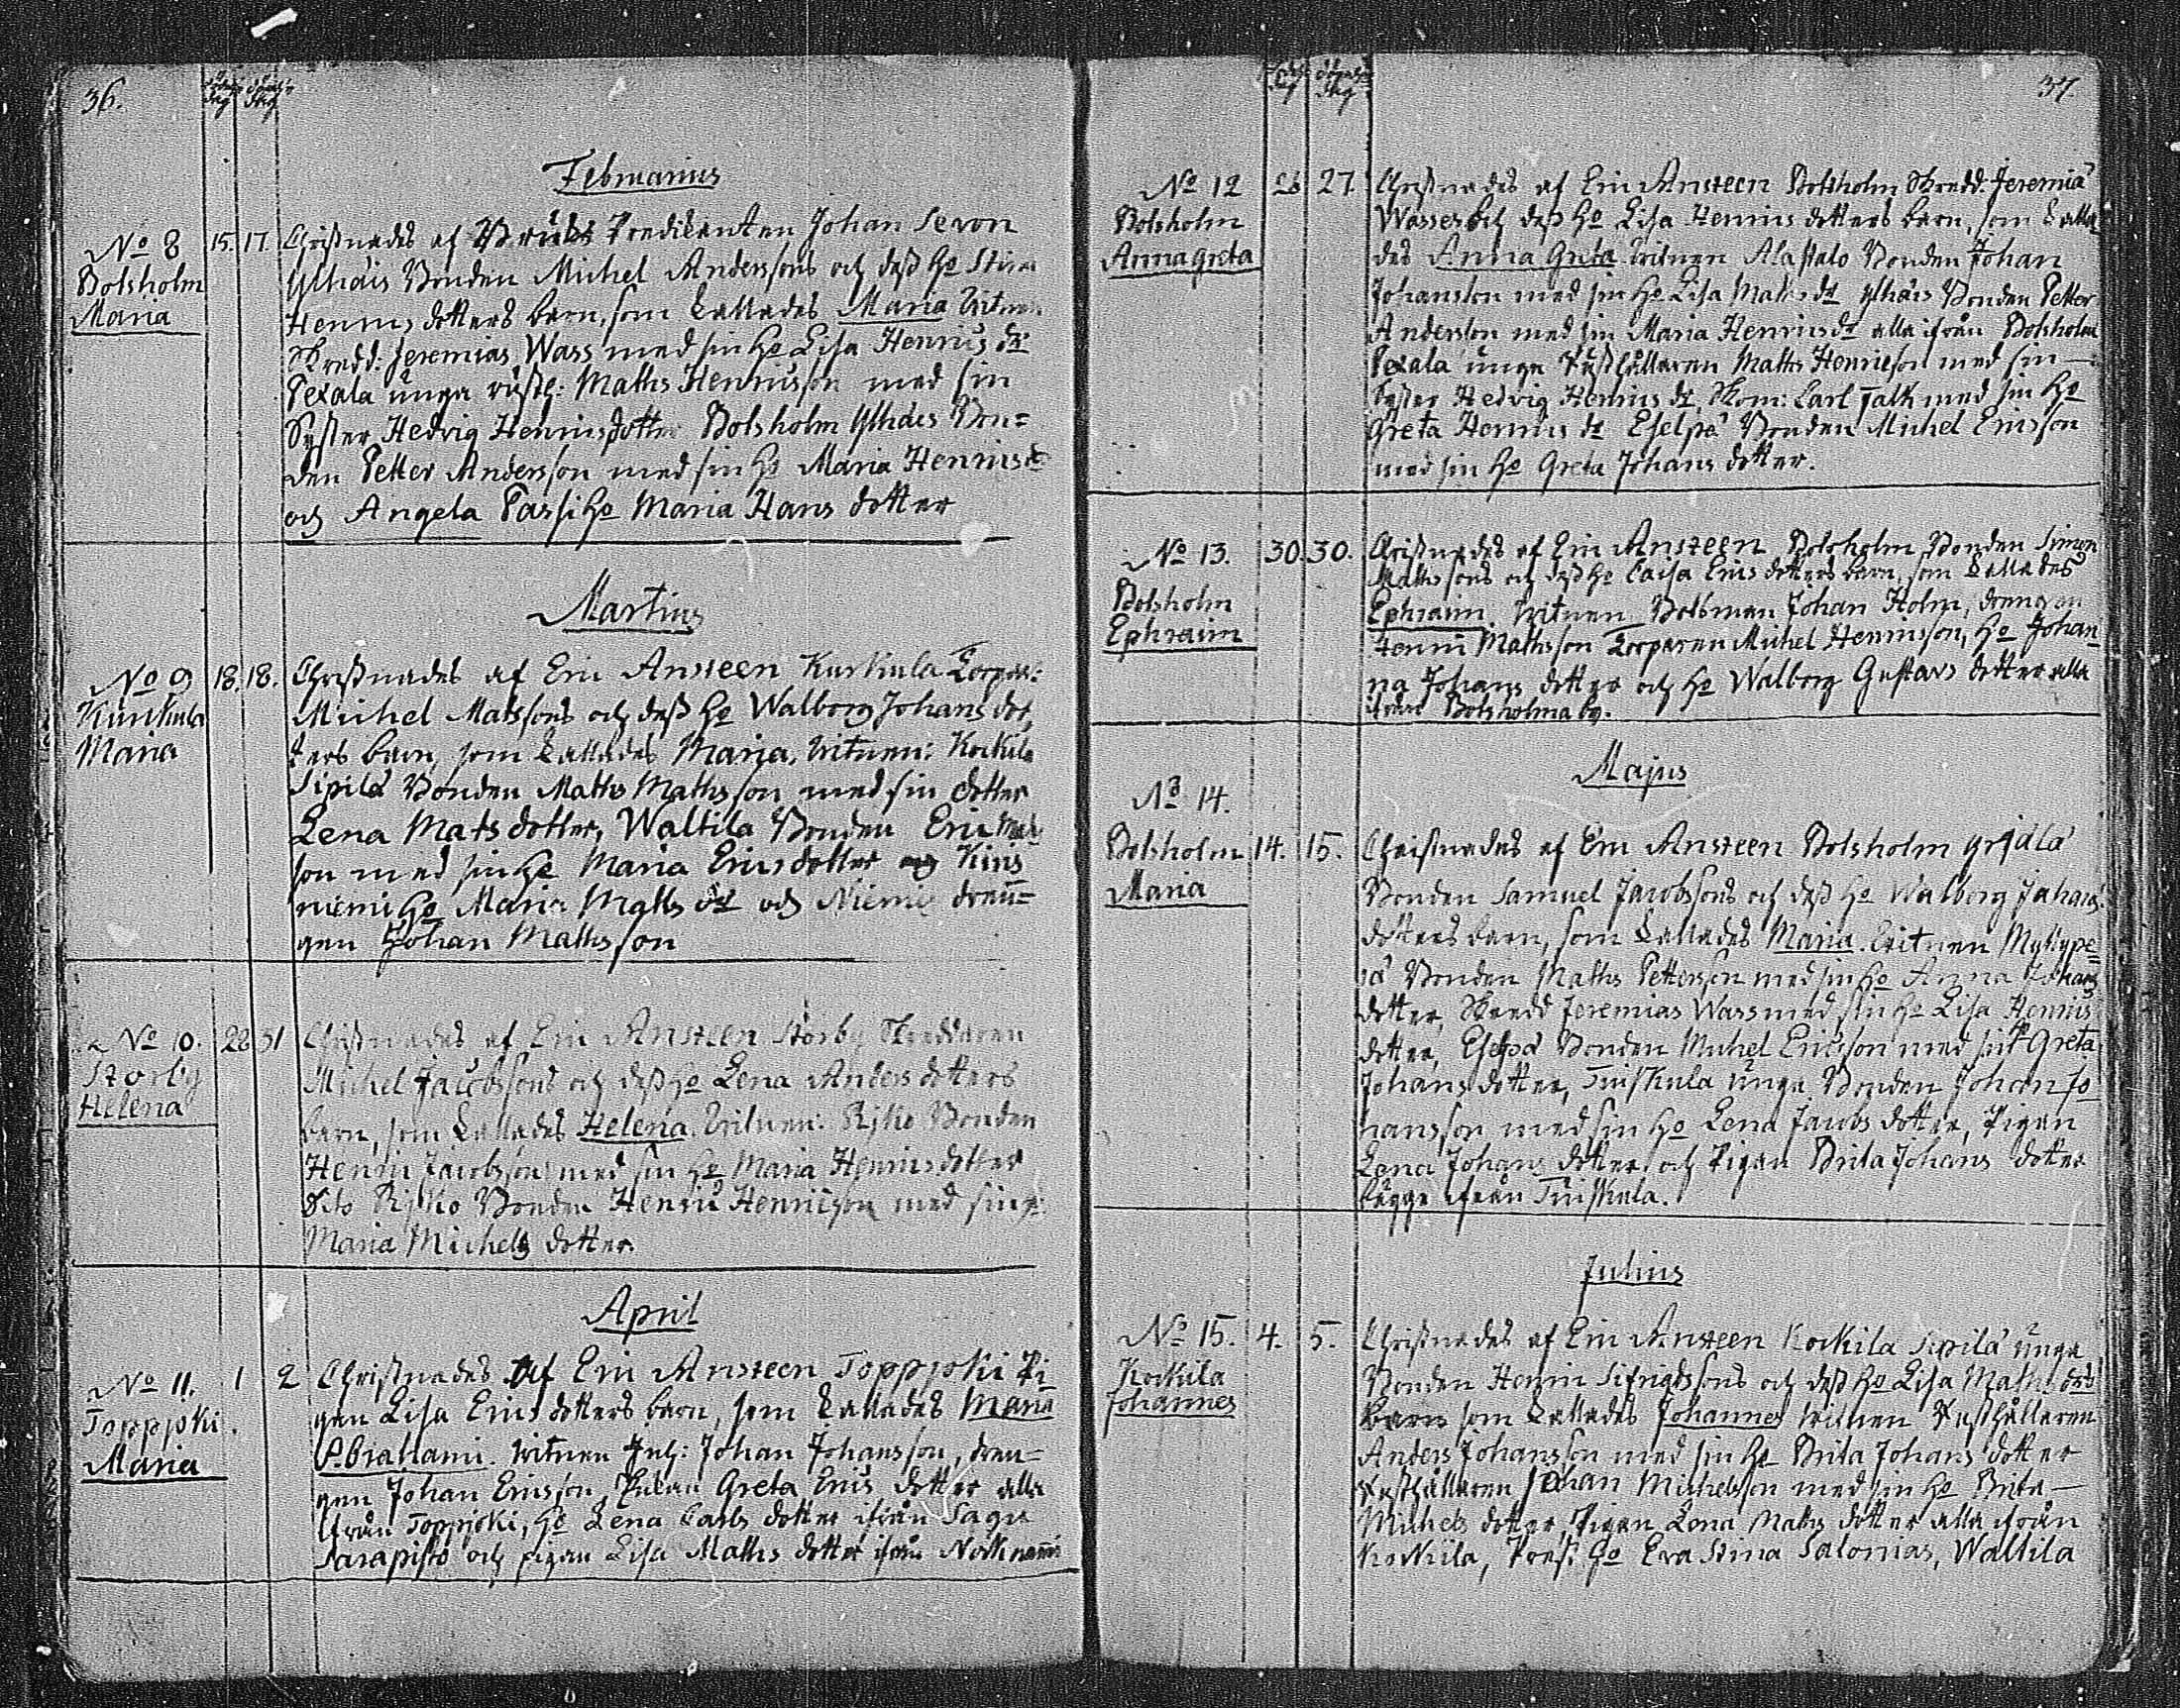 36.
Födelse dag
Döpelse dag
Februarius
No 8 15. 17. Christnades af Bruks Predikanten Johan Sevon
Bolsholm Ylhäis Bonden Michel Anderssons och dess Ho Stina
Maria Henriks dotters barn, som kallades Maria. Witnen
Skredd: Jeremias Wass med sin Ho Lisa Henrics dr
Pexala unga rusth: Matts Henricsson med sin
Syster Hedvig Henricsdotter Bolsholm Ylhäis Bon=
den Petter Andersson med sin Ho Maria Henricsdr
och Angela Passi Ho Maria Hans dotter
Martius
No 9 18. 18. Christnades af Eric Ansteen Kurkula Torpar:
Kurkula Michel Matssons och dess Ho Walborg Johans dot
Maria ters barn, som kallades Maria. Witnen: Kockila
Sipilä Bonden Matts Mathsson med sin dotter
Lena Mats dotter, Waltila Bonden Eric Mats
son med sin Ho Maria Ericsdotter
niemi Ho Maria Matts dr och Niemis dren=
gen Johan Mathsson
No 10. 28 31 Christnades af Eric Ansteen Storby Skreddaren
Storby Michel Jacobssons och dess Ho Lena Anders dotters
Helena barn, som kallades Helena. Witnen: Rijko Bonden
Henric Jacobsson med sin Ho Maria Henricsdotter
Dito Rijko Bonden Henric Henricsson med sin Ho
Maria Michels dotter.
April
No 11. 1 2 Christnades af Eric Ansteen Toppjoki Pi=
Toppjoki. gan Lisa Erics dotters barn, som kallades Maria
Maria Abrahami. Witnen Inh: Johan Johansson, dren=
gen Johan Ericsson, Greta Erics dotter alla
ifrån Toppjoki, Ho Lena Carls dotter ifrån Sagu
Sarapisto och pigan Lisa Maths dotter ifrån
37
Födelse dag
Döpelse dag
No 12 26 27. Christnades af Eric Ansteen Bolsholm Skredd. Jeremia
Bolsholm Wasses och dess Ho Lisa Henrics dotters barn, som kalla
Anna Greta des Anna Greta. Witnen Alastalo Bonden Johan
Johansson med sin Ho Lisa Matts dr Ylhäis Bonden Petter
Andersson med sin Maria Henricsdr alla ifrån Bolsholm
Pexala unga Rusthållaren Matts Henricsson med sin —
Syster Hedvig Henrics dr, Skom: Carl Falk med sin Ho
Greta Henrics dr Eselpä Bonden Michel Ericsson
med sin Ho Greta Johans dotter.
No 13. 30. 30. Christnades af Eric Ansteen Bolsholm Bonden Simon
Bolsholm Mathssons och dess Ho Caisa Erics dotters barn, som kallades
Ephraim Ephraim. Witnen Båtsman Johan Holm, drengen
Henric Mathsson Torparen Michel Henricsson, Ho Johan
na Johans dotter och Ho Walborg Gustavs dotter alla
ifrån Bolsholma by.
Majus
No 14.
Bolsholm 14. 15. Christnades af Eric Ansteen Bolsholm Yrjälä
Maria Bonden Samuel Jacobssons och dess Ho Walborg Johans
dotters barn, som kallades Maria. Witnen
Bonden Maths Petterson med sin Ho Anna Johans
dotter, Skredd Jeremias Wass med sin Ho Lisa Henrics
dotter, Eselpä Bonden Michel Ericsson med sin Ho Greta
Johans dotter, Tuiskula unga Bonden Johan Jo
hansson med sin Ho Lena Jacobs dotter, Pigan
Lena Johans dotter och Pigan Brita Johans dotter
begge ifrån Tuiskula.
Julius
No 15. 4. 5. Christnades af Eric Ansteen Kockila Sipilä unga
Kockila Bonden Henric Sifridssons och dess Ho Lisa Maths drs
Johannes barn som kallades Johannes Witnen Rusthållaren
Anders Johansson med sin Ho Brita Johans dotter
Rusthållaren Johan Michelsson med sin Ho Brita —
Michels dotter, Pigan Lena Maths dotter alla ifrån
Kockila, Prest Ho Eva Stina Salonias, Waltila